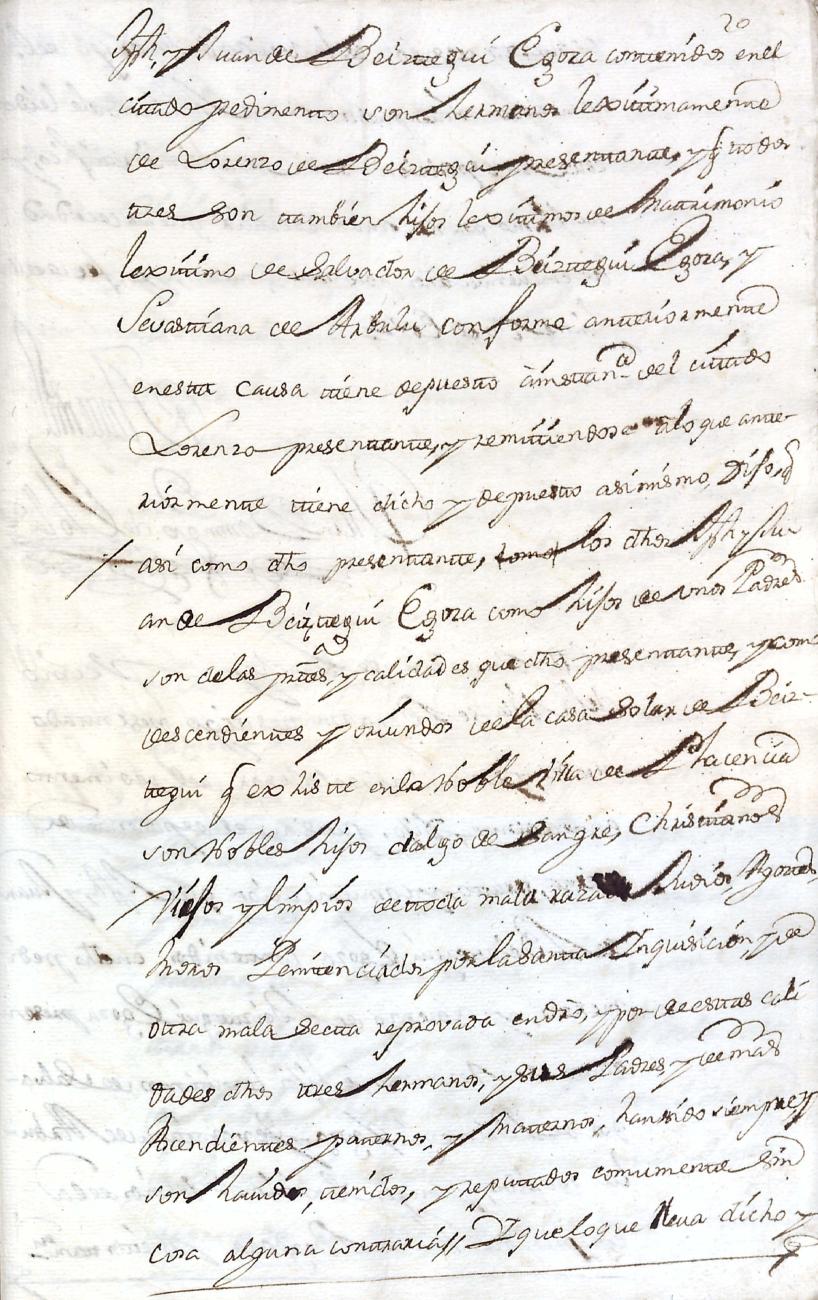 20
Jph, y Juan de Beiztegui Egora contenidos en el
citado pedimento son hermanos lexitimamente
de Lorenzo de Beiztegui presentante, y q todos
tres son tambien hijos lexitimos de Matrimonio
lexitimo de Salvador de Beiztegui Egora, y
Sevastiana de Arbulu conforme anteriormente
en esta causa tiene depuesto à instan.a del citado
Lorenzo presentante, y remitiendose a lo que ante-
riormente tiene dicho y depuesto asimismo, Dijo, q
asi como dho presentante, como los dhos Jph y Ju
an de Beiztegui Egora como hijos de unos Padres
son de las prtes, y calidades que dho presentante, y como
descendientes y oriundos de la casa Solar de Beiz-
tegui q exsiste en la Noble Villa de Placencia
son Nobles hijos dalgo de Sangre, Christianos
Viejos y limpios de toda mala raza de Judios, Agotes,
Moros Penitenciados por la Santa Inquisicion, y de
otra mala Secta reprovada en dro, y por de estas cali
dades dhos tres hermanos, y sus Padres y demas
Ascendientes paternos, y Maternos, han sido siempre y
son havidos, tenidos, y reputados comumente Sin
cosa alguna contraria // Y que lo que lleva dicho y